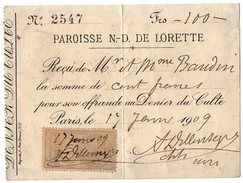 N° 2547 Frs -100-
PAROISSE N.-D. DE LORETTE
Reçu de Mr et Mme Baudin
la somme de Cent francs
pour son offrande au Denier du Culte
Paris, le 17 Janv 1909
17 Janv 09